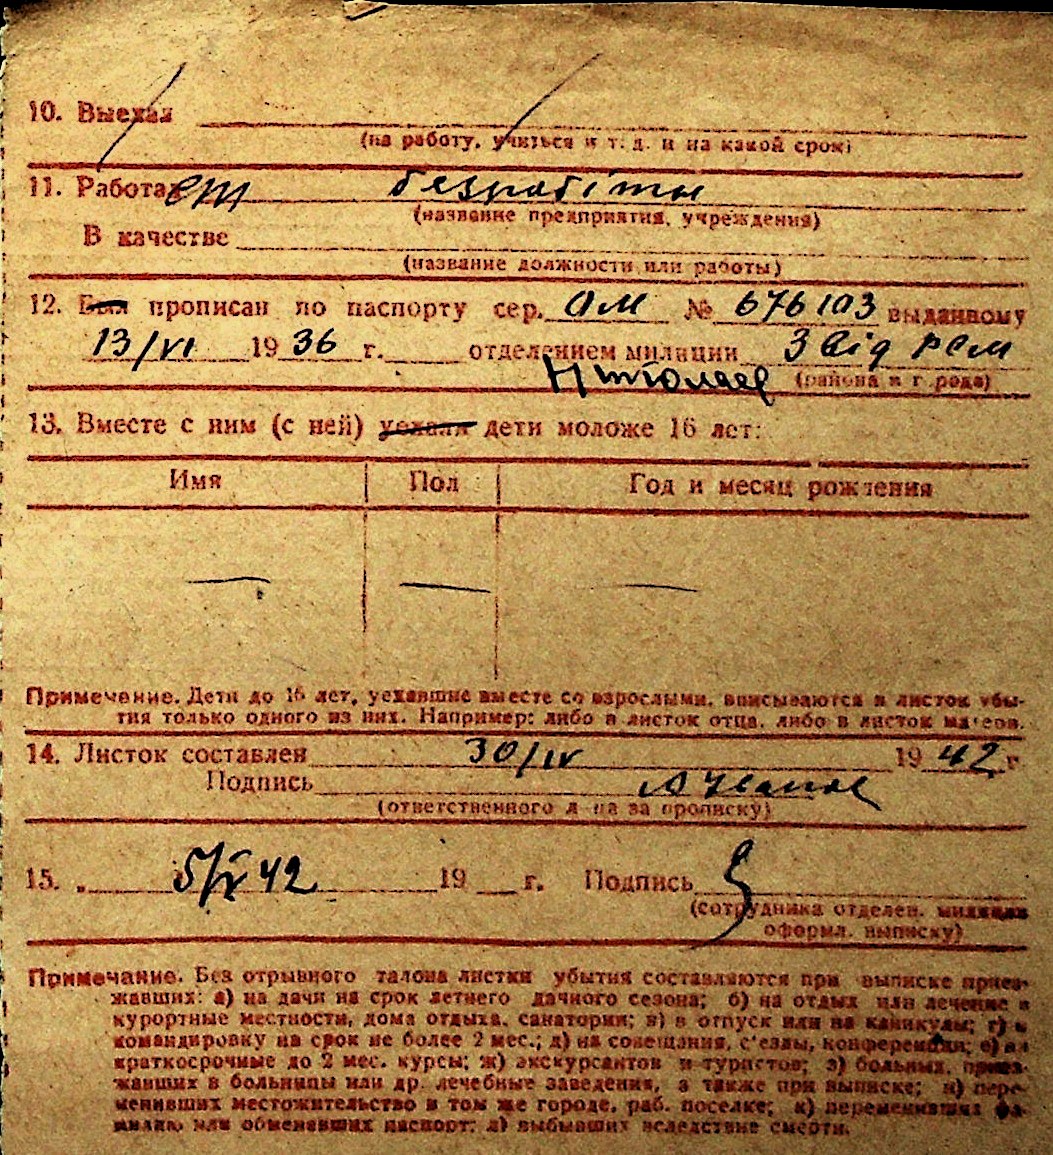 10. Выехал
(на работу, учиться и т. д. и на какой срок)
11. Работает безработный
(название предприятия, учреждения)
В качестве
(название должности или работы)
12. Был прописан по паспорту сер. ОМ № 676103 выданному
13/VI 1936 г. отделением милиции 3 від РСМ
Николаев (района и города)
13. Вместе с ним (с ней) уехали дети моложе 16 лет:
Имя Пол Год и месяц рождения
— — —
Примечение. Дети до 16 лет, уехавшие вместе со взрослыми, вписываются в листок убы-
тия только одного из них. Например: либо в листок отца, либо в листок матери.
14. Листок составлен 30/IV 1942 г
Подпись
(ответственного л-ца за прописку)
15. „ 5/V 42 19 г. Подпись
(сотрудника отделен. милиции
оформл. выписку)
Примечание. Без отрывного талона листки убытия составляются при выписке приез-
жавших: а) на дачи на срок летнего дачного сезона; б) на отдых или лечение в
курортные местности, дома отдыха, санатории; в) в отпуск или на каникулы; г) в
командировку на срок не более 2 мес.; д) на совещания, с'езды, конференции; е) на
краткосрочные до 2 мес. курсы; ж) экскурсантов и туристов; з) больных, приез-
жавших в больницы или др. лечебные заведения, а также при выписке; и) пере-
менивших местожительство в том же городе, раб. поселке; к) переменивших фа-
милию или обменявших паспорт; л) выбывших вследствие смерти.